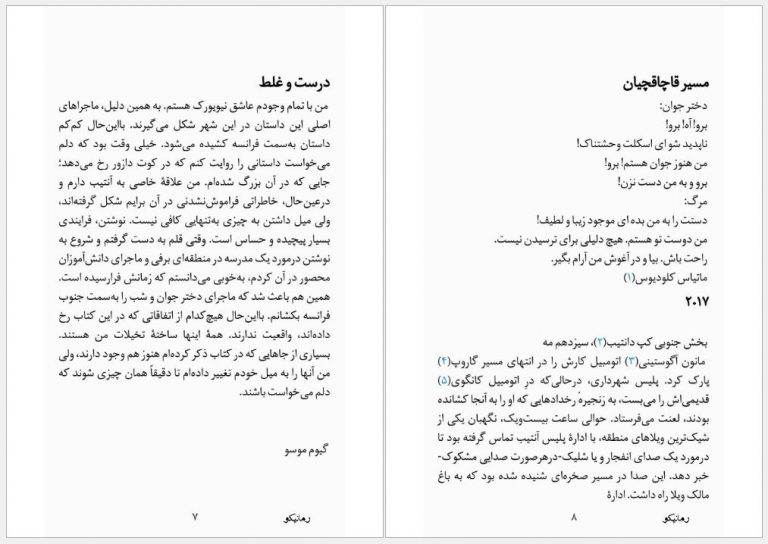 درست و غلط
من با تمام وجودم عاشق نیویورک هستم. به همین دلیل، ماجراهای
اصلی این داستان در این شهر شکل می‌گیرند. بااین‌حال کم‌کم
داستان به‌سمت فرانسه کشیده می‌شود. خیلی وقت بود که دلم
می‌خواست داستانی را روایت کنم که در کوت دازور رخ می‌دهد؛
جایی که در آن بزرگ شده‌ام. من علاقهٔ خاصی به آنتیب دارم و
درعین‌حال، خاطراتی فراموش‌نشدنی در آن برایم شکل گرفته‌اند،
ولی میل داشتن به چیزی به‌تنهایی کافی نیست. نوشتن، فرایندی
بسیار پیچیده و حساس است. وقتی قلم به دست گرفتم و شروع به
نوشتن درمورد یک مدرسه در منطقه‌ای برفی و ماجرای دانش‌آموزان
محصور در آن کردم، به‌خوبی می‌دانستم که زمانش فرارسیده است.
همین هم باعث شد که ماجرای دختر جوان و شب را به‌سمت جنوب
فرانسه بکشانم. بااین‌حال هیچ‌کدام از اتفاقاتی که در این کتاب رخ
داده‌اند، واقعیت ندارند. همهٔ اینها ساختهٔ تخیلات من هستند.
بسیاری از جاهایی که در کتاب ذکر کرده‌ام هنوز هم وجود دارند، ولی
من آنها را به میل خودم تغییر داده‌ام تا دقیقاً همان چیزی شوند که
دلم می‌خواست باشند.
گیوم موسو
رمانیکو
۷
مسیر قاچاقچیان
دختر جوان:
برو! آه! برو!
ناپدید شو ای اسکلت وحشتناک!
من هنوز جوان هستم! برو!
برو و به من دست نزن!
مرگ:
دستت را به من بده ای موجود زیبا و لطیف!
من دوست تو هستم. هیچ دلیلی برای ترسیدن نیست.
راحت باش. بیا و در آغوش من آرام بگیر.
ماتیاس کلودیوس(۱)
۲۰۱۷
بخش جنوبی کپ دانتیب(۲)، سیزدهم مه
مانون آگوستینی(۳) اتومبیل کارش را در انتهای مسیر گاروپ(۴)
پارک کرد. پلیس شهرداری، درحالی‌که درِ اتومبیل کانگوی(۵)
قدیمی‌اش را می‌بست، به زنجیرهٔ رخدادهایی که او را به آنجا کشانده
بودند، لعنت می‌فرستاد. حوالی ساعت بیست‌ویک، نگهبان یکی از
شیک‌ترین ویلاهای منطقه، با ادارهٔ پلیس آنتیب تماس گرفته بود تا
درمورد یک صدای انفجار و یا شلیک-درهرصورت صدایی مشکوک-
خبر دهد. این صدا در مسیر صخره‌ای شنیده شده بود که به باغ
مالک ویلا راه داشت. ادارهٔ
رمانیکو
۸